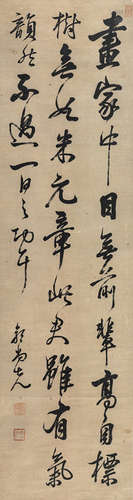 畫家中目無前輩高自標
樹無如米元章此吏雖有氣
韻然不過一日之功耳
郭尚先